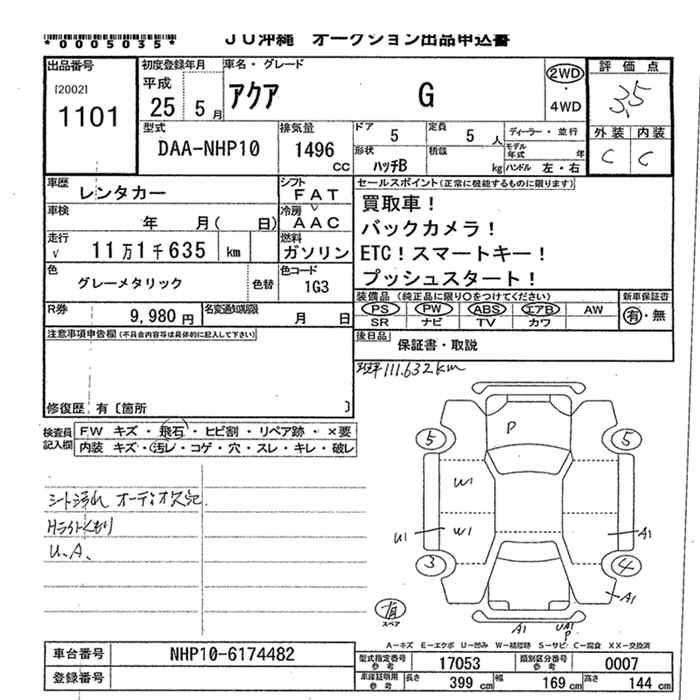 *0005035*
JU沖縄 オークション出品申込書
出品番号
[2002]
1101
初度登録年月
平成
25 5 月
車名・グレード
アクア G
2WD
・
4WD
評価点
3.5
外装 内装
C C
型式
DAA-NHP10
排気量
1496
CC
ドア 5
定員 5 人
ディーラー・並行
形状
ハッチB
積載 kg
モデル年式 年
ハンドル 左・右
車歴 レンタカー
シフト
FAT
車検 年 月( 日)
冷房
AAC
走行 √ 11万1千635 km
燃料
ガソリン
色 グレーメタリック 色替
色コード
1G3
R券 9,980 円
名変通知期限 月 日
セールスポイント(正常に機能するものに限ります)
買取車!
バックカメラ!
ETC!スマートキー!
プッシュスタート!
装備品 (純正品に限り○をつけてください)
PS PW ABS エアB AW
SR ナビ TV カワ
新車保証書
有・無
後日品 保証書・取説
注意事項申告欄(不具合内容等は具体的に記入して下さい)
修復歴 有〔箇所 〕
111.632km
検査員記入欄
FW キズ・飛石・ヒビ割・リペア跡・×要
内装 キズ・汚レ・コゲ・穴・スレ・キレ・破レ
シート汚れ オーディオ欠品
Hライトくもり
U、A、
P
5 5
W1
U1 W1 A1
3 4
A1
有
スペア
A1 UA1
P
A−キズ E−エクボ U−凹み W−補修跡 S−サビ C−腐食 XX−交換済
車台番号 NHP10-6174482
登録番号
型式指定番号参考 17053
類別区分番号参考 0007
車庫証明用参考 長さ 399 cm 幅 169 cm 高さ 144 cm